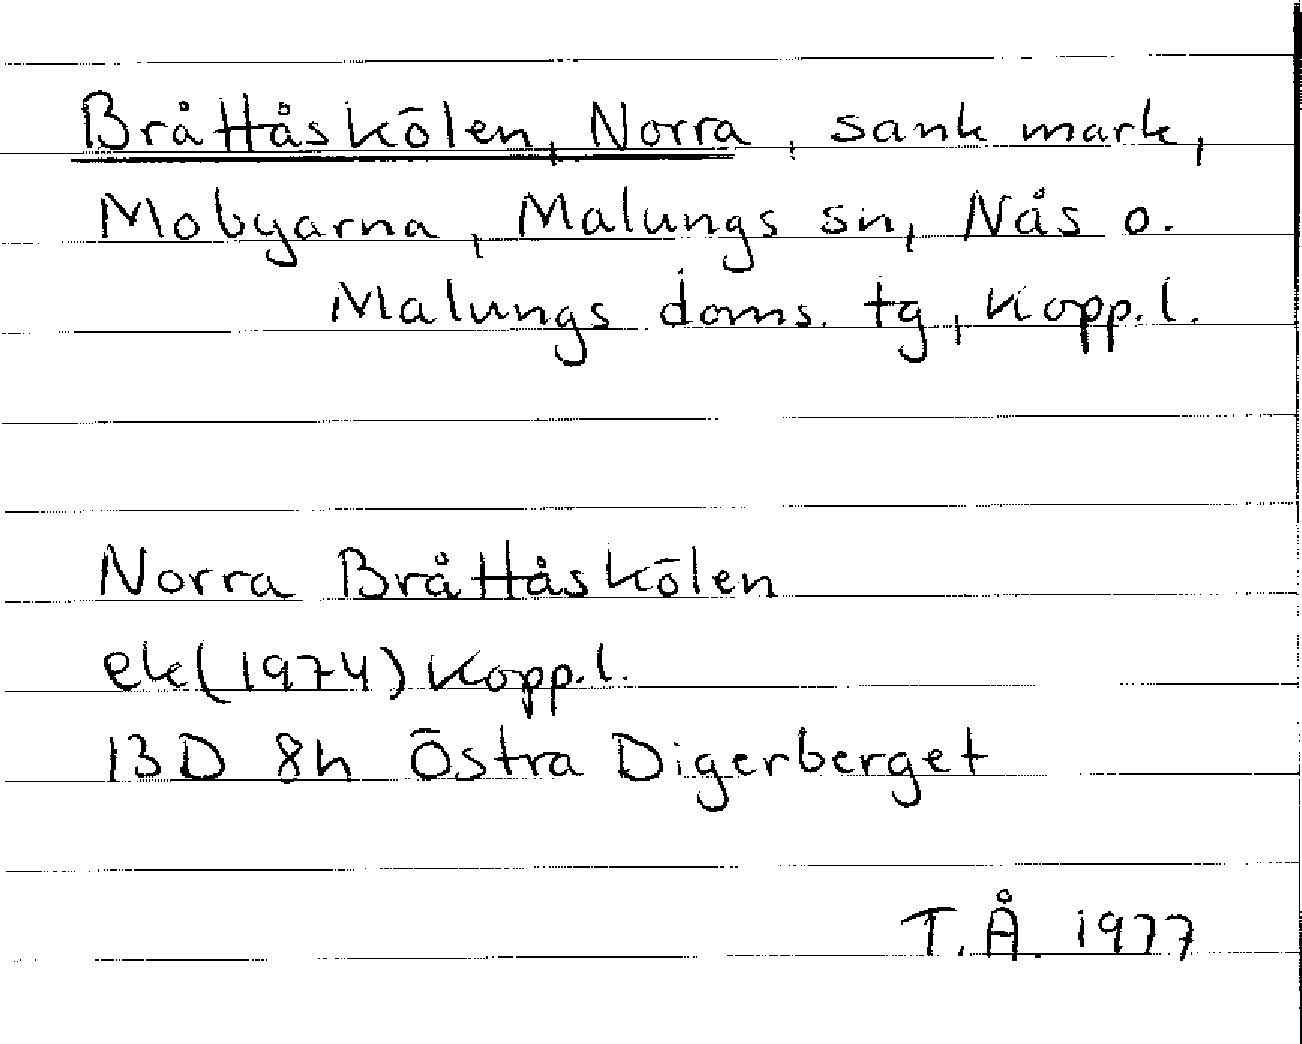 Bråttåskölen, Norra, sank mark,
Mobyarna, Malungs sn, Nås o.
Malungs doms. tg, Kopp.l.
Norra Bråttåskölen
ek(1974) Kopp.l.
13D 8h Östra Digerberget
T.Å. 1977